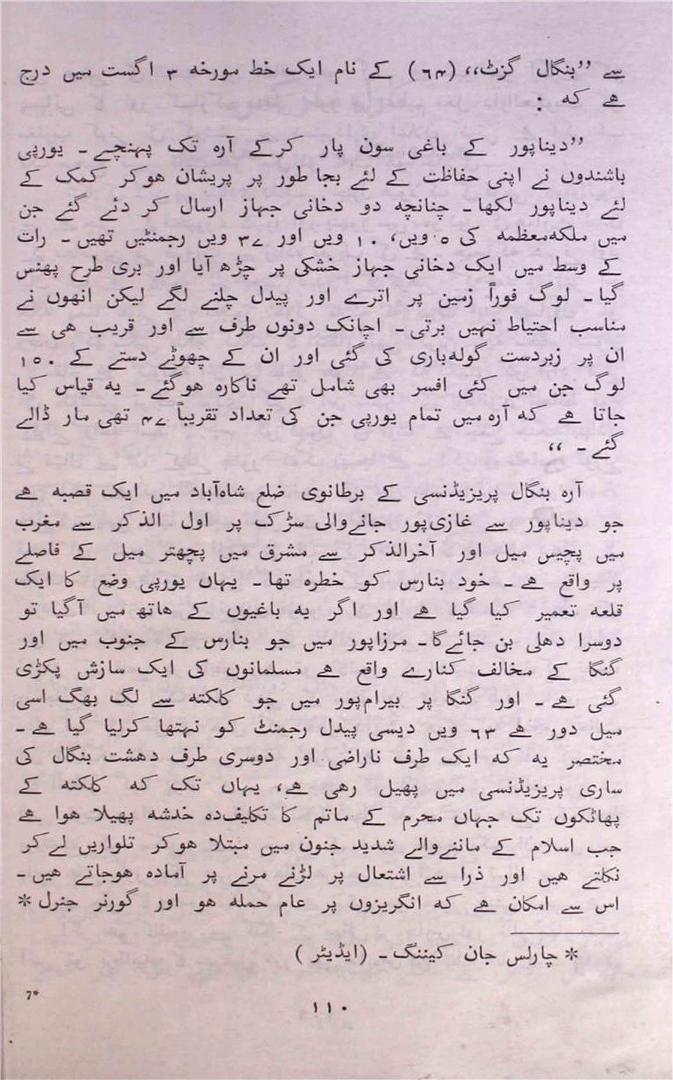 سے ’’بنگال گزٹ،، (٦٤) کے نام ایک خط مورخہ ٣ اگست میں درج
ھے کہ :
’’دیناپور کے باغی سون پار کرکے آرہ تک پہنچے۔ یورپی
باشندوں نے اپنی حفاظت کے لئے بجا طور پر پریشان ھوکر کمک کے
لئے دیناپور لکھا۔ چنانچہ دو دخانی جہاز ارسال کر دئے گئے جن
میں ملکہ معظمہ کی ٥ ویں، ١٠ ویں اور ٣٧ ویں رجمنٹیں تھیں۔ رات
کے وسط میں ایک دخانی جہاز خشکی پر چڑھ آیا اور بری طرح پھنس
گیا۔ لوگ فوراً زمین پر اترے اور پیدل چلنے لگے لیکن انھوں نے
مناسب احتیاط نہیں برتی۔ اچانک دونوں طرف سے اور قریب ھی سے
ان پر زبردست گولہ باری کی گئی اور ان کے چھوٹے دستے کے ١٥٠
لوگ جن میں کئی افسر بھی شامل تھے ناکارہ ھوگئے۔ یہ قیاس کیا
جاتا ھے کہ آرہ میں تمام یورپی جن کی تعداد تقریباً ٤٧ تھی مار ڈالے
گئے۔ ،،
آرہ بنگال پریزیڈنسی کے برطانوی ضلع شاہ‌آباد میں ایک قصبہ ھے
جو دیناپور سے غازی‌پور جانےوالی سڑک پر اول الذکر سے مغرب
میں پچیس میل اور آخرالذکر سے مشرق میں پچھتر میل کے فاصلے
پر واقع ھے۔ خود بنارس کو خطرہ تھا۔ یہاں یورپی وضع کا ایک
قلعہ تعمیر کیا گیا ھے اور اگر یہ باغیوں کے ھاتھ میں آگیا تو
دوسرا دھلی بن جائے‌گا۔ مرزاپور میں جو بنارس کے جنوب میں اور
گنگا کے مخالف کنارے واقع ھے مسلمانوں کی ایک سازش پکڑی
گئی ھے۔ اور گنگا پر بیرام‌پور میں جو کلکتہ سے لگ بھگ اسی
میل دور ھے ٦٣ ویں دیسی پیدل رجمنٹ کو نہتھا کرلیا گیا ھے۔
مختصر یہ کہ ایک طرف ناراضی اور دوسری طرف دھشت بنگال کی
ساری پریزیڈنسی میں پھیل رھی ھے، یہاں تک کہ کلکتہ کے
پھاٹکوں تک جہاں محرم کے ماتم کا تکلیف‌دہ خدشہ پھیلا ھوا ھے
جب اسلام کے ماننےوالے شدید جنون میں مبتلا ھوکر تلواریں لےکر
نکلتے ھیں اور ذرا سے اشتعال پر لڑنے مرنے پر آمادہ ھوجاتے ھیں۔
اس سے امکان ھے کہ انگریزوں پر عام حملہ ھو اور گورنر جنرل *
* چارلس جان کیننگ۔ (ایڈیٹر)
7*
١١٠